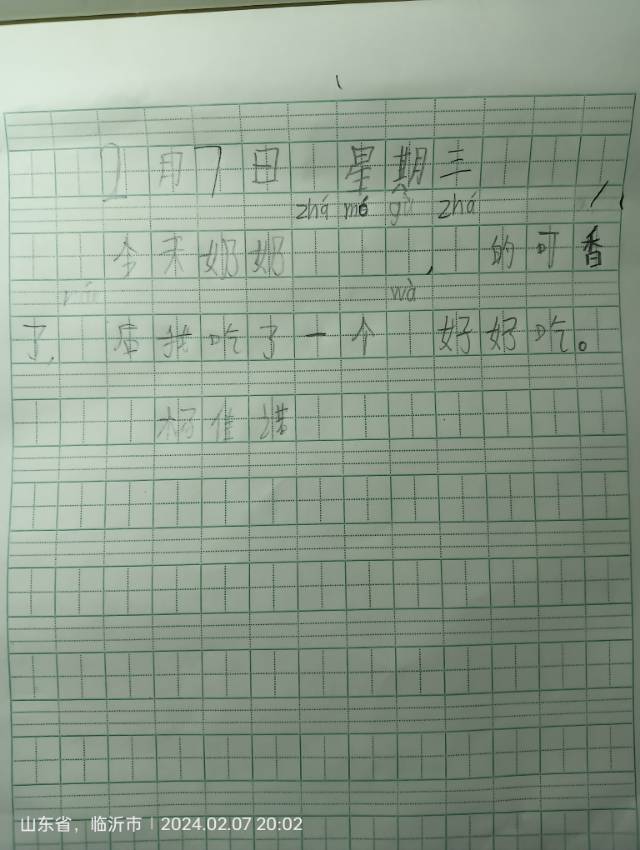 2月7日 星期三
zhá mó gū zhá
今天奶奶 , 的可香
wà
了, 在我吃了一个 好好吃。
山东省，临沂市 | 2024.02.07 20:02